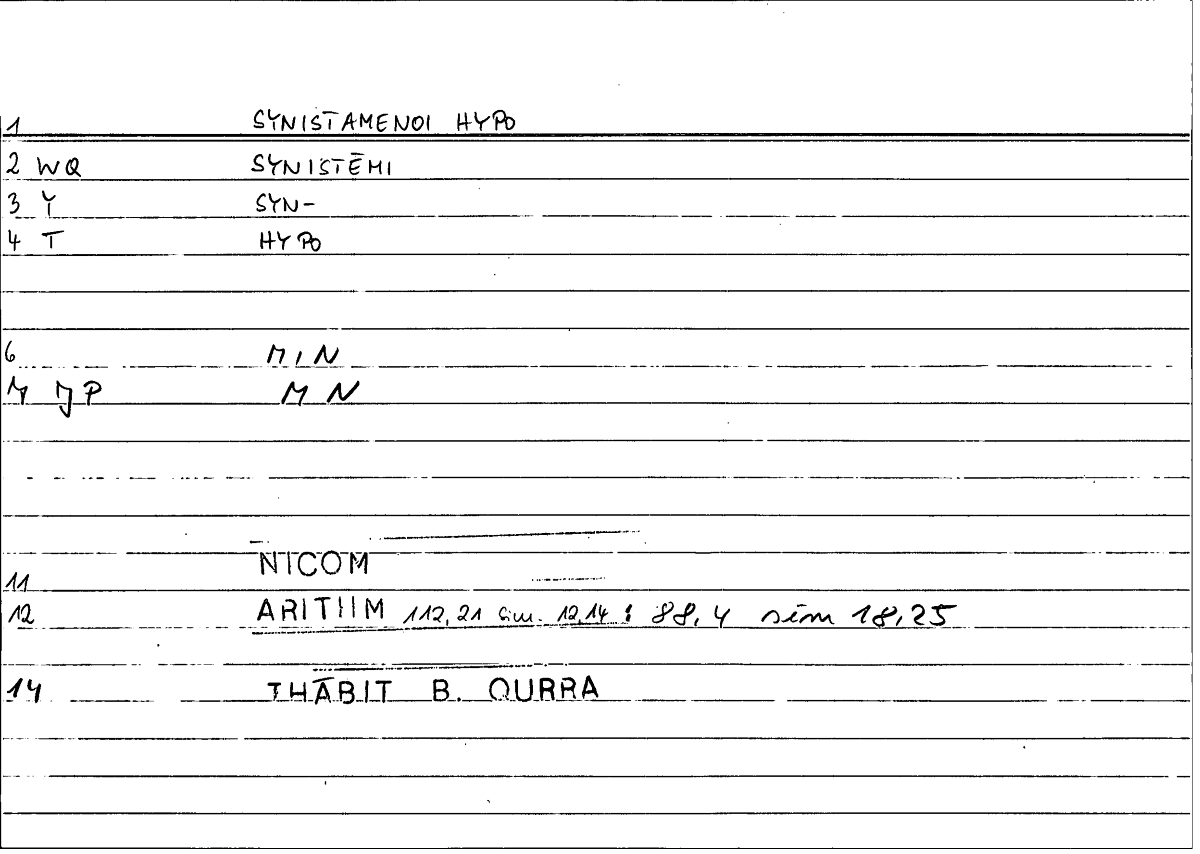 1 SYNISTAMENOI HYPO
2 WQ SYNISTĒMI
3 Y SYN-
4 T HYPO
6 MIN
MN
NICOM
11
12 ARITHM 112,21 sim. 12,14 : 88,4 sim 18,25
14 THĀBIT B. QURRA